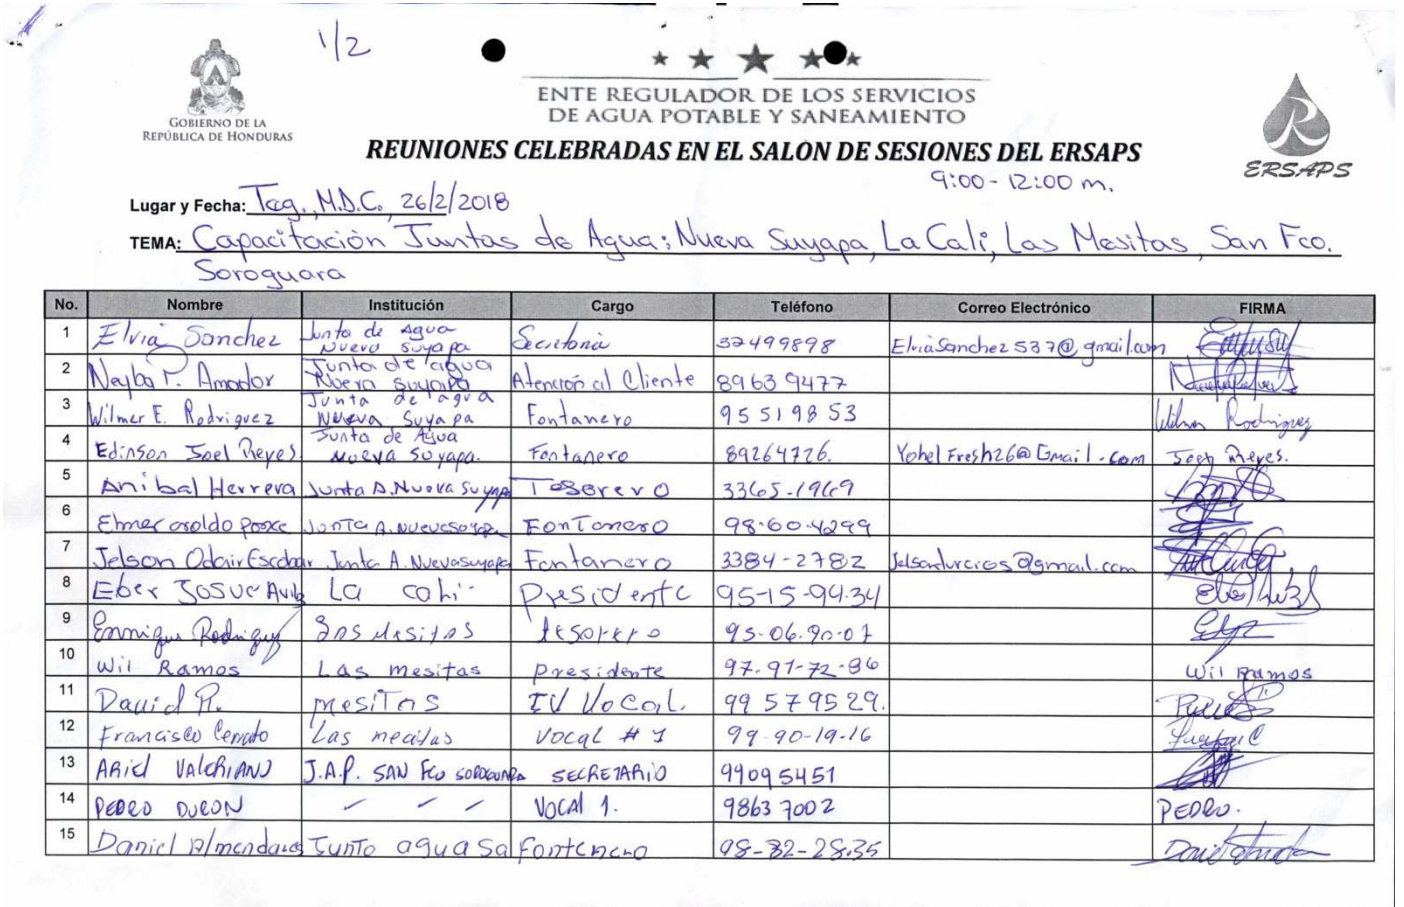 1/2
GOBIERNO DE LA
REPÚBLICA DE HONDURAS
ENTE REGULADOR DE LOS SERVICIOS
DE AGUA POTABLE Y SANEAMIENTO
REUNIONES CELEBRADAS EN EL SALON DE SESIONES DEL ERSAPS
R
ERSAPS
9:00 - 12:00 m.
Lugar y Fecha: Teg., M.D.C., 26/2/2018
TEMA: Capacitación Juntas de Agua: Nueva Suyapa, La Cali, Las Mesitas, San Fco.
Soroguara
No. Nombre Institución Cargo Teléfono Correo Electrónico FIRMA
1 Elvia Sanchez Junta de Agua Nueva Suyapa Secretaria 32499898 ElviaSanchez537@gmail.com
2 Neyba P. Amador Junta de agua Nueva Suyapa Atención al Cliente 89639477
3 Wilmer E. Rodriguez Junta de agua Nueva Suyapa Fontanero 95519853 Wilmer Rodriguez
4 Edinson Joel Reyes Junta de Agua Nueva Suyapa. Fontanero 89264726. YohelFresh26@Gmail.com Joel Reyes.
5 Anibal Herrera Junta A. Nueva Suyapa Tesorero 3365-1969
6 Elmer Junta A. Nueva Suyapa Fontanero 98-60-4299
7 Jelson Odair Escobar Junta A. Nueva Suyapa Fontanero 3384-2782 @gmail.com
8 Eber Josue Avila La cali Presidente 95-15-94-34
9 Enrrique Rodriguez Las Mesitas tesorero 95-06-90-07
10 Wil Ramos Las mesitas presidente 97-91-72-86 Wil Ramos
11 David R. mesitas IV Vocal. 99579529.
12 Francisco Cerrato Las mecitas Vocal # 1 99-90-19-16
13 ARiel VALERIANO J.A.P. SAN Fco SOROGUARA SECRETARIO 99095451
14 PEDRO DURON VOCAl 1. 98637002 PEDRO.
15 Daniel Almendares Junto agua sa fontenero 98-32-28-35